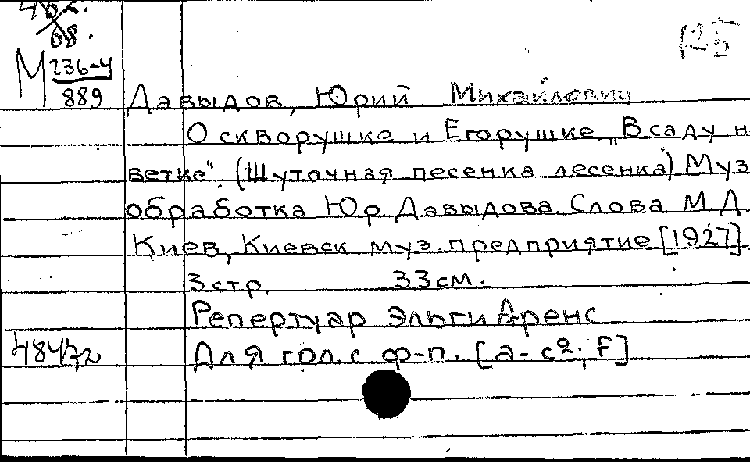 М 236-4
889
Давыдов, Юрий Михайлович
О скворушке и Егорушке „В саду н
ветке". (Шуточная песенка лесенка) Муз
обработка Юр Давыдова. Слова М. Д.
Киев, Киевск муз. предприятие [1927].
3 стр. 33 см.
Репертуар Эльги Аренс
Для гол. с ф-п. [a-c². F]